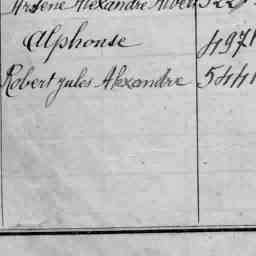 Arsène Alexandre Albert 522
Alphonse 4971
Robert Jules Alexandre 5441